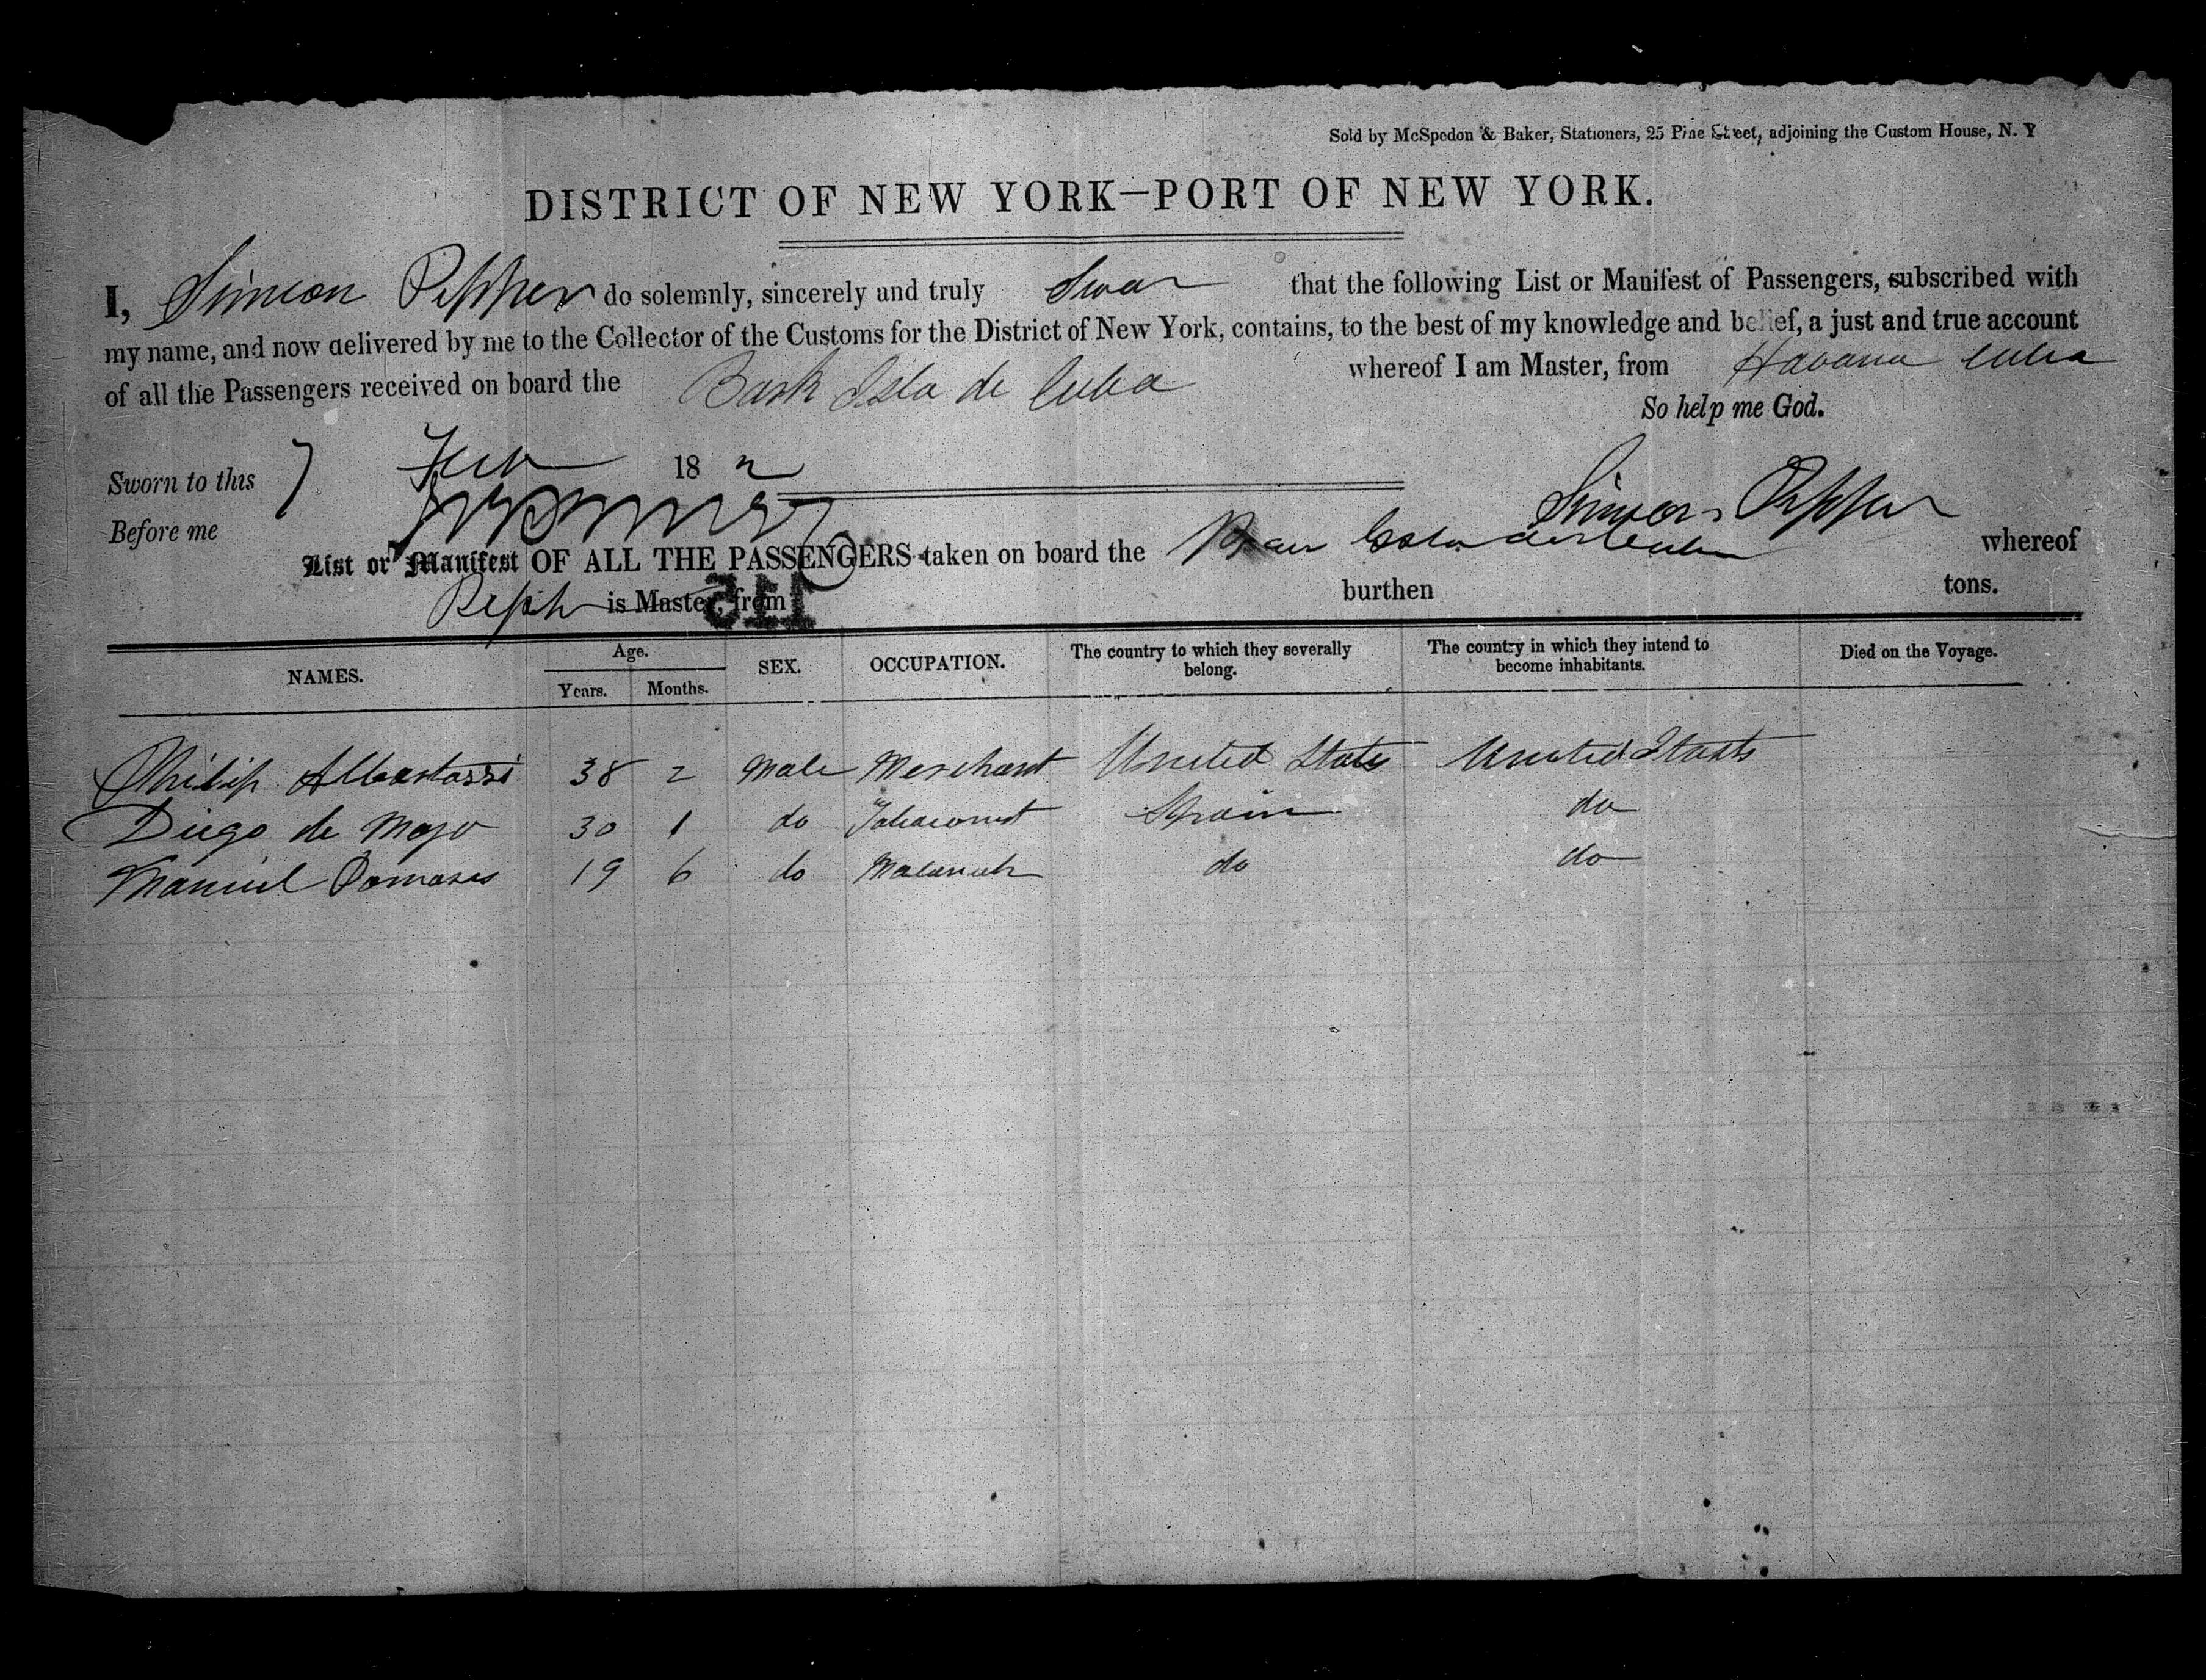 Sold by McSpedon & Baker, Stationers, 25 Pine Street, adjoining the Custom House, N. Y
DISTRICT OF NEW YORK—PORT OF NEW YORK.
I, Simeon Pepper do solemnly, sincerely and truly Swear that the following List or Manifest of Passengers, subscribed with
my name, and now delivered by me to the Collector of the Customs for the District of New York, contains, to the best of my knowledge and belief, a just and true account
of all the Passengers received on board the Bark Isla de Cuba whereof I am Master, from Havana Cuba
So help me God.
Sworn to this 7 18
Before me
Simeon Pepper
List or Manifest OF ALL THE PASSENGERS taken on board the whereof
is Master, from burthen tons.
115
NAMES. Age. Years. Months. SEX. OCCUPATION. The country to which they severally belong. The country in which they intend to become inhabitants. Died on the Voyage.
Philip 38 2 Male Merchant United States United States
Diego de Moyo 30 1 do Tobaconist Spain do
Manuel 19 6 do do do